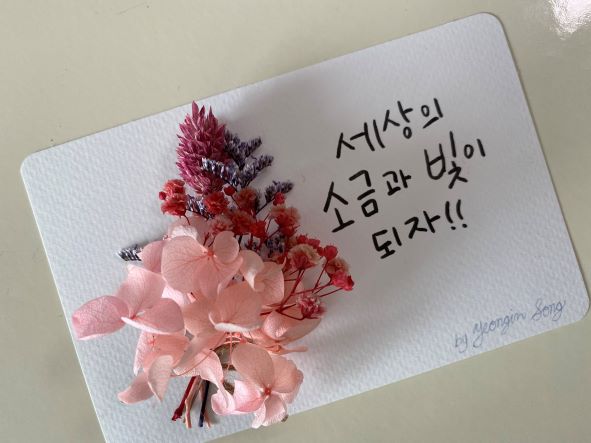 세상의
소금과 빛이
되자!!
by Yeongin Song